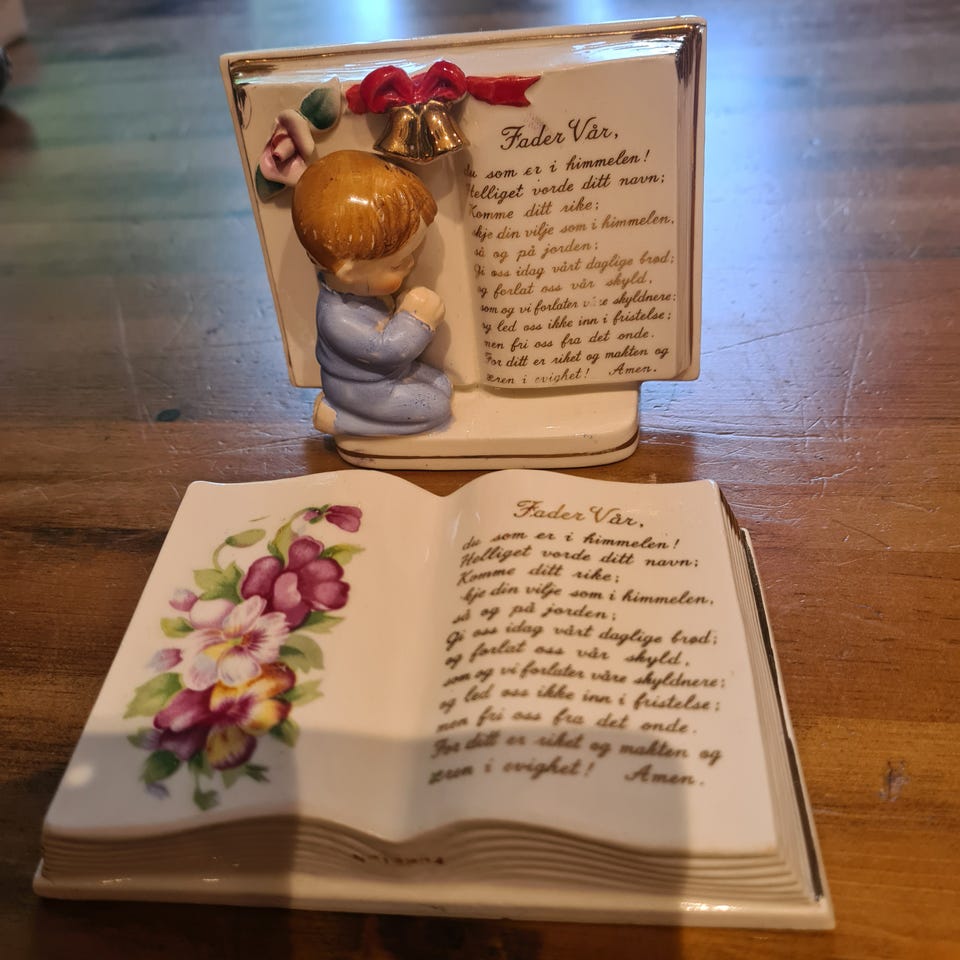 Fader Vår,
du som er i himmelen!
Helliget vorde ditt navn;
Komme ditt rike;
skje din vilje som i himmelen,
så og på jorden;
Gi oss idag vårt daglige brød;
og forlat oss vår skyld,
som og vi forlater våre skyldnere;
og led oss ikke inn i fristelse;
men fri oss fra det onde.
For ditt er riket og makten og
æren i evighet! Amen.
Fader Vår,
du som er i himmelen!
Helliget vorde ditt navn;
Komme ditt rike;
skje din vilje som i himmelen,
så og på jorden;
Gi oss idag vårt daglige brød;
og forlat oss vår skyld,
som og vi forlater våre skyldnere;
og led oss ikke inn i fristelse;
men fri oss fra det onde.
For ditt er riket og makten og
æren i evighet! Amen.